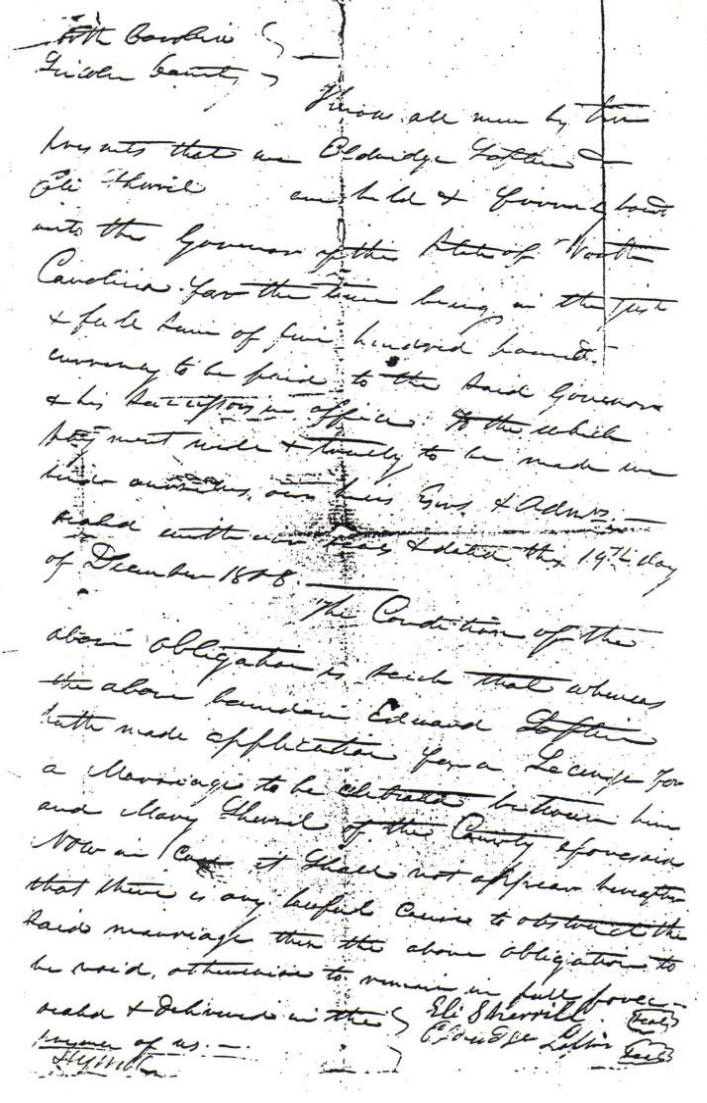 North Carolina
Lincoln County
Know all men by these
presents that we Eldridge Loftin &
Eli Sherril are held & firmly bound
unto the Governor of the State of North
Carolina for the time being in the Just
& full sum of five hundred pounds
currency to be paid to the said Governor
& his Successors in office to the which
payment well & truly to be made we
bind ourselves our heirs Exrs. & Admrs.
sealed with our seals & dated this 19th day
of December 18
The Condition of the
above obligation is such that whereas
the above bounden Edward Loftin
hath made application for a License for
a Marriage to be celebrated between him
and Mary Sherril of the County aforesaid
Now in Case it Shall not appear hereafter
that there is any lawful cause to obstruct the
said marriage then the above obligation to
be void, otherwise to remain in full force
seald & delivered in the
presence of us.
Eli Sherrill Seal
Eldridge Loftin Seal